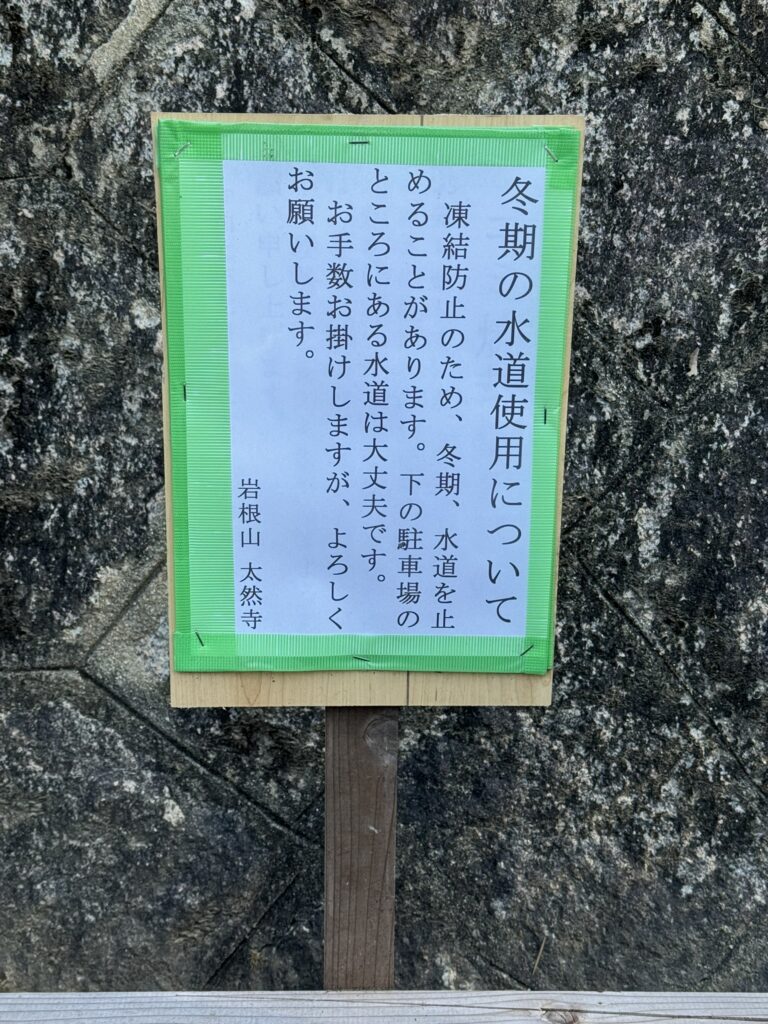 冬期の水道使用について
凍結防止のため、冬期、水道を止
めることがあります。下の駐車場の
ところにある水道は大丈夫です。
お手数お掛けしますが、よろしく
お願いします。
岩根山 太然寺